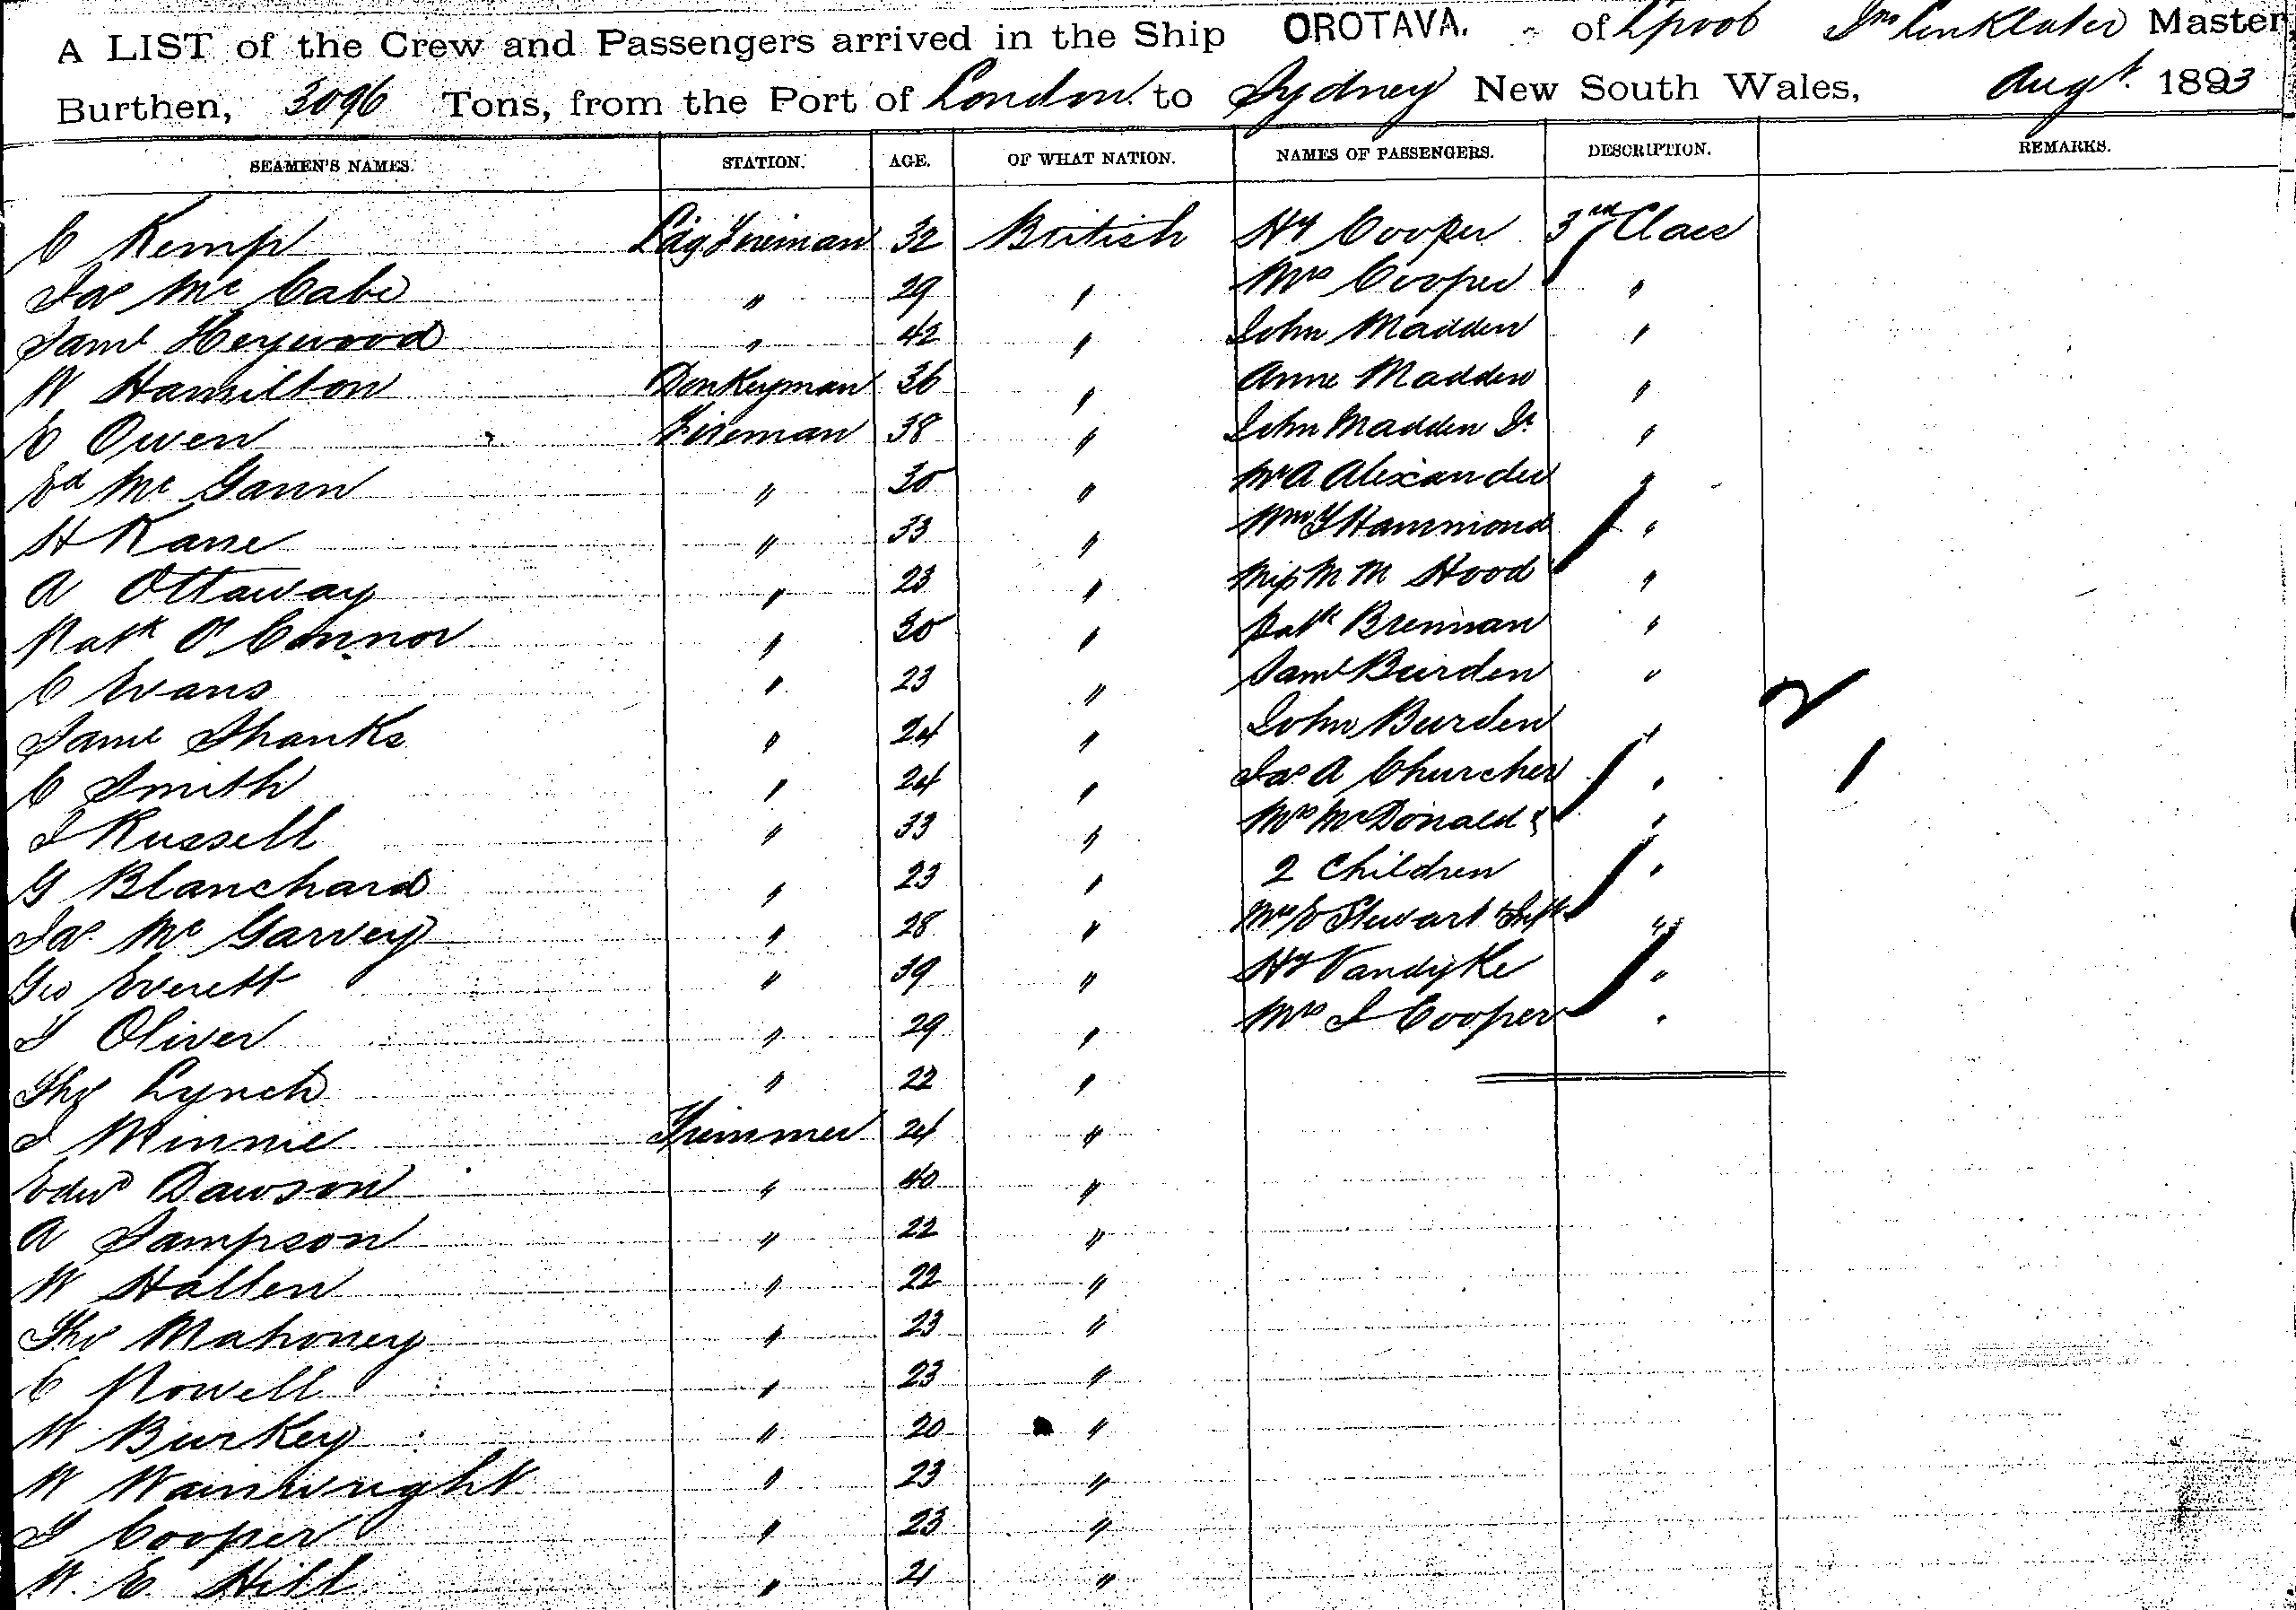 A LIST of the Crew and Passengers arrived in the Ship OROTAVA. of L'pool Master,
Burthen, 3096 Tons, from the Port of London to Sydney New South Wales, Augt. 1893
SEAMEN'S NAMES. STATION. AGE. OF WHAT NATION. NAMES OF PASSENGERS. DESCRIPTION. REMARKS.
C Kemp Ldg Fireman 32 British Hy Cooper 3rd Class
Jas Mc Cabe " 29 " Mrs Cooper "
Saml Heywood " 42 " John Madden "
W Hamilton Donkeyman 36 " Anne Madden "
E Owen Fireman 38 " John Madden Jr "
Ed Mc Gann " 30 " Mr A Alexander "
H Kane " 33 " Wm Hammond "
A Ottaway " 23 " Miss M M Hood "
Patk O'Connor " 30 " Patk Brennan "
C Evans " 23 " Saml Burden "
Saml Shanks " 24 " John Burden "
C Smith " 24 " Jas A Churcher "
J Russell " 33 " Mrs McDonald & "
G Blanchard " 23 " 2 Children "
Jas Mc Garvey " 28 " Mrs E Stewart & Inft "
Geo Everett " 39 " Hy Vandyke "
J Oliver " 29 " Mrs J Cooper "
Ths Lynch " 22 "
J Minnie Trimmer 24 "
Edwd Dawson " 40 "
A Sampson " 22 "
W Hallen " 22 "
Ths Mahoney " 23 "
C Powell " 23 "
W Burkey " 20 "
W Wainwright " 23 "
T Cooper " 23 "
W. E Hill " 21 "